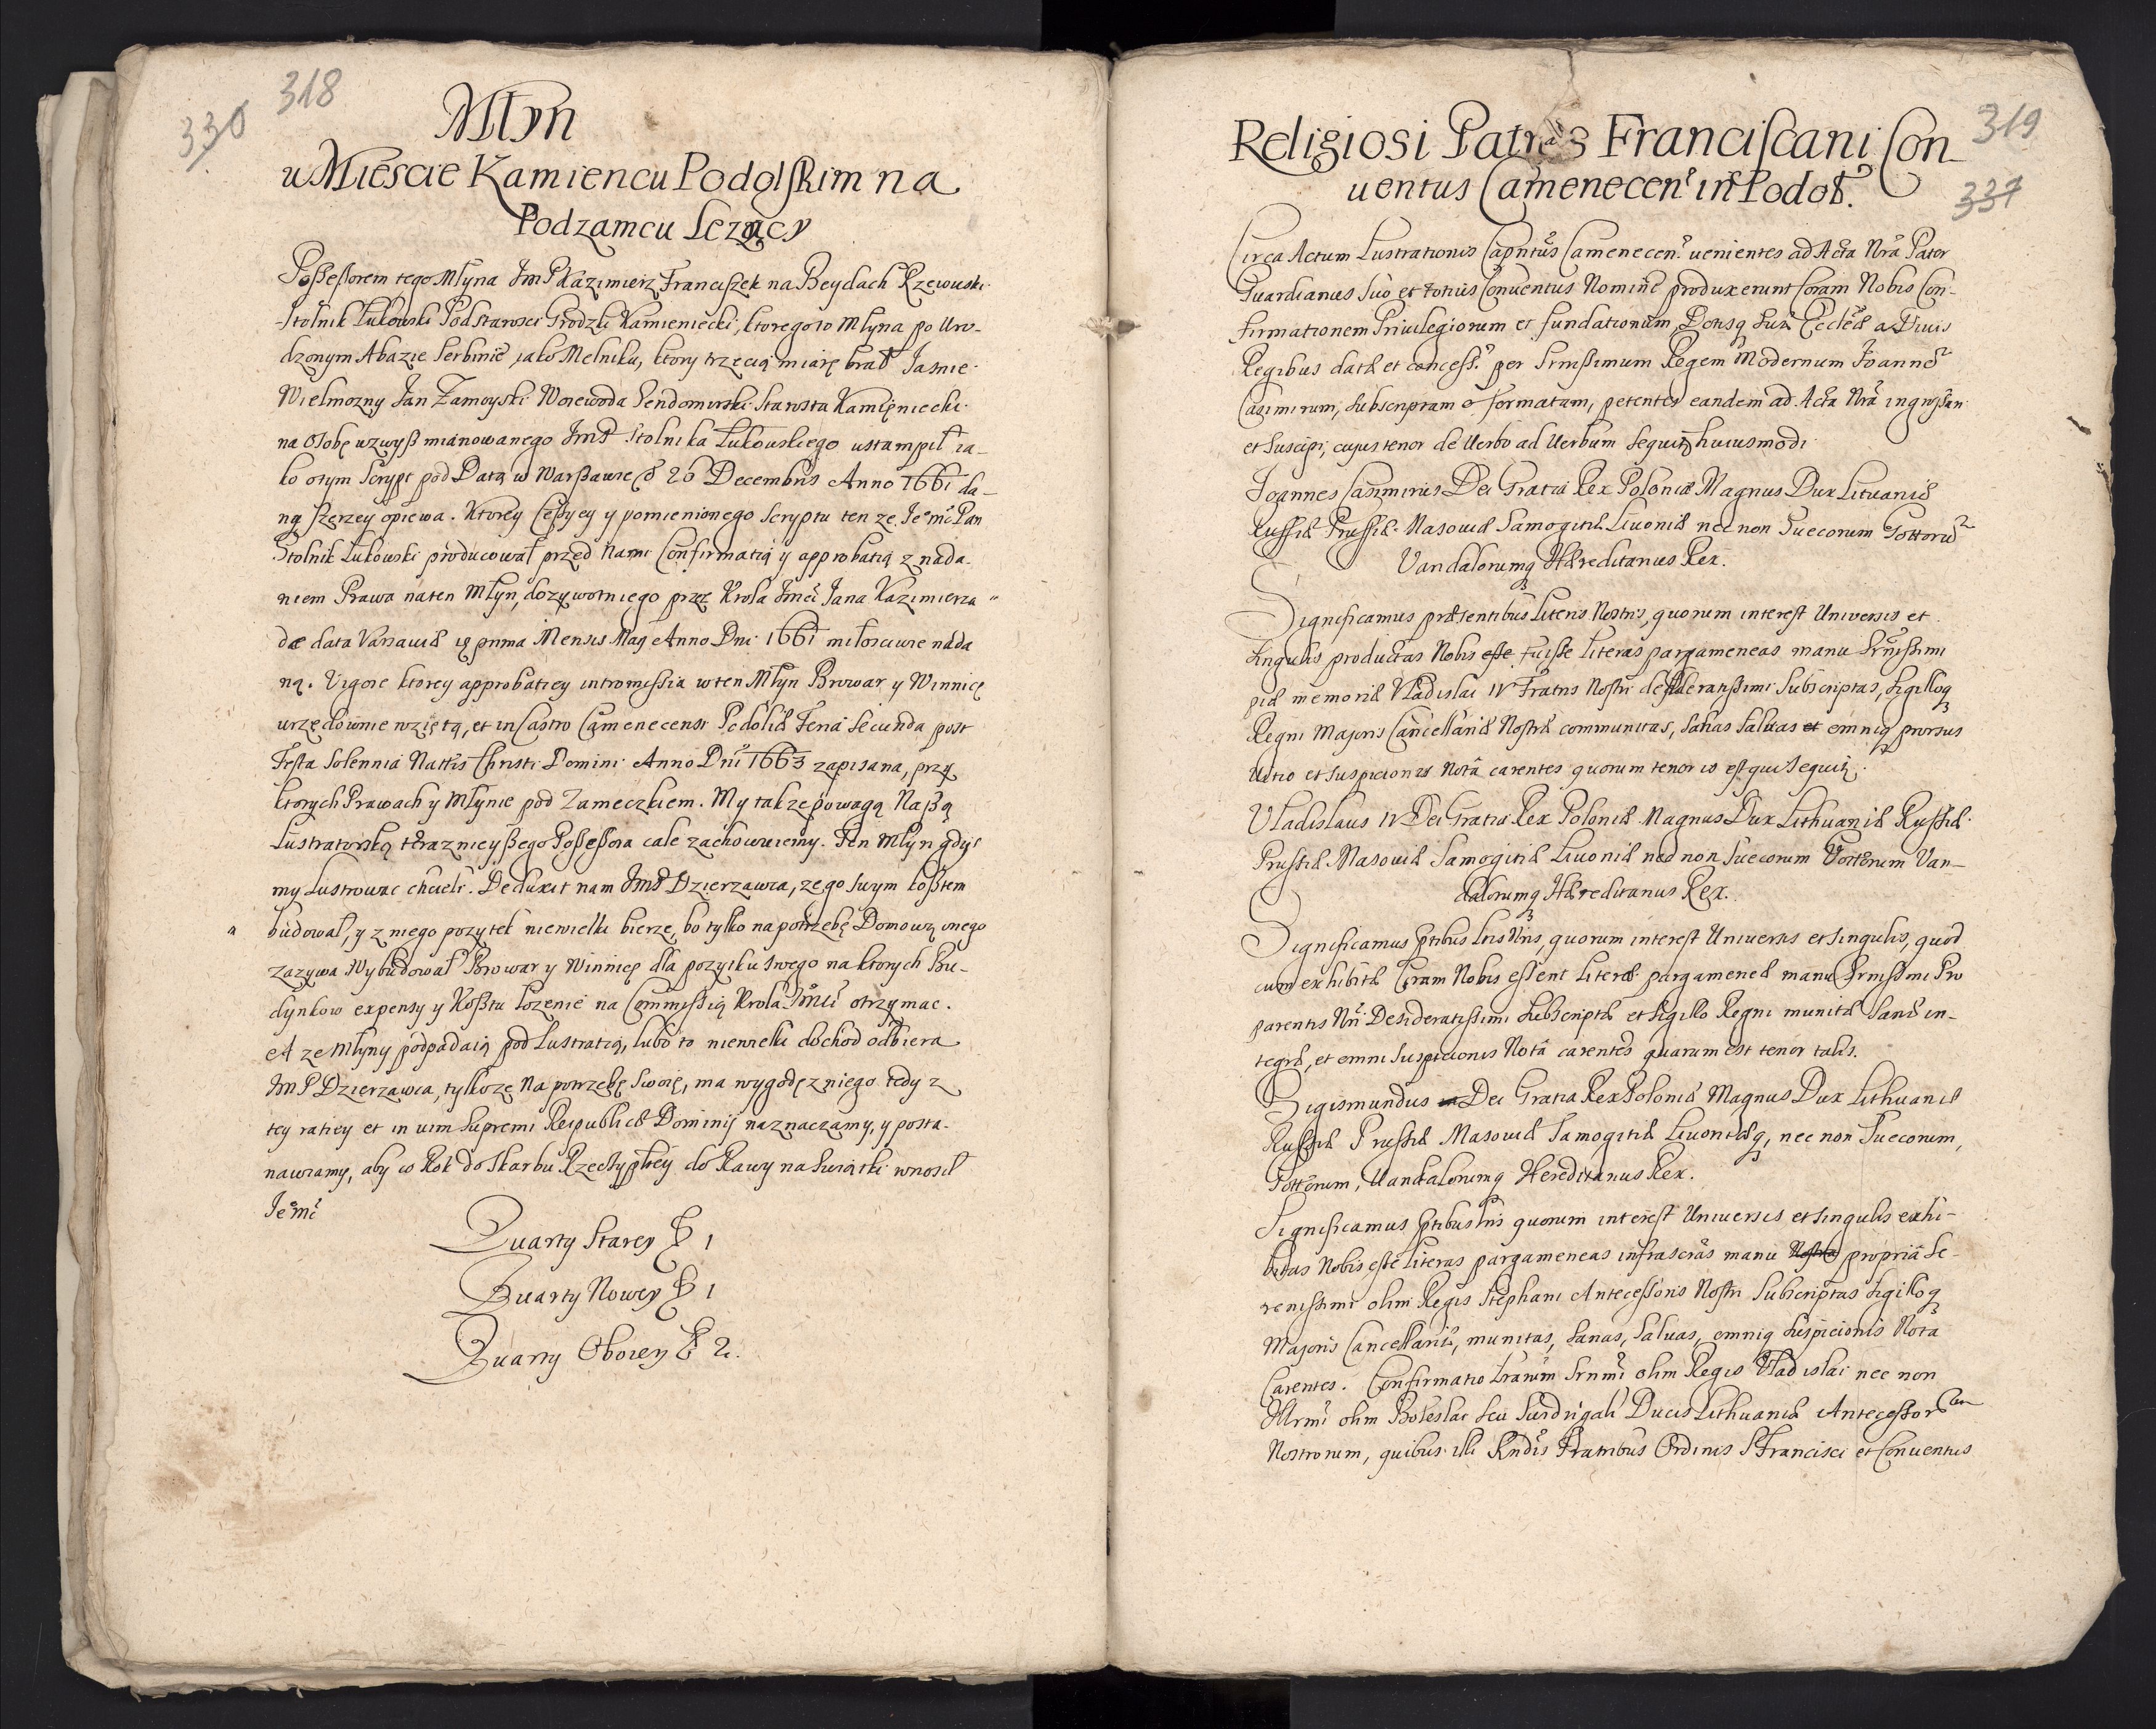 318
330
Młyn
w Miescie Kamiencu Podolskim na
Podzamcu Lezący
Possessorem tego Młyna JmP Kazimierz Franciszek na Beydach Rzewuski
Stolnik Łukowski Podstarosci Grodzki Kamieniecki, ktorego to Młyna po Uro-
dzonym Abazie Serbinie iako Melniku, ktory trzecią miarę brał Jasnie
Wielmozny Jan Zamoyski Woiewoda Sendomirski Starosta Kamięniecki
na Osobę wzwyß mianowanego JmP Stolnika Łukowskiego ustąmpił ia-
ko otym Scrypt pod Datą w Warßawie d 26 Decembris Anno 1661 da-
ną szerzey opiewa. Ktorey Cessyey y pomienionego Scryptu ten ze Jemć Pan
Stolnik Łukowski producował przed Nami Confirmatią y approbatią z nada-
niem Prawa na ten Młyn, dozywotniego przez Krola Jmci Jana Kazimierza
de data Varsaviæ prima Mensis Maÿ Anno Dni 1661 miłosciwie nada
ną. Vigore ktorey approbatiey intromissia w ten Młyn Browar y Winnicę
urzędownie wzięta, et in Castro Camenecensi Podoliæ Feria Secunda post
Festa Solennia Nattis Christi Domini Anno Dni 1663 zapisana, przy
ktorych Prawach y Młynie pod Zameczkiem. My takze powagą Naßą
Lustratorską teraznieyßego Possessora cale zachowuiemy. Ten Młyn gdys
my Lustrowac chcieli. Deduxit nam JmP Dzierzawca, ze go swym koßtem
budował, y z niego pozytek niewielki bierze, bo tylko na potrzebę Domową onego
zazywa Wybudował Browar y Winnicę dla pozytku swego na ktorych Bu-
dynkow expensy y Koßtu łozenie na Commissią Krola Jmci otrzymac.
A ze Młyny podpadaią pod Lustratią, lubo to niewielki dochod odbiera
JmP Dzierzawca, tylko ze Na potrzebę Swoię, ma wygodę z niego tedy z
tey ratiey et in vim Supremi Reipublicæ Dominij naznaczamy, y posta-
nawiamy, aby co Rok do Skarbu Rzeczyptey do Rawy na Swiątki wnosił
Jemć
Quarty Starey 1
Quarty Nowey 1
Quarty Oboiey 2.
319
337
Religiosi Patres Franciscani Con-
uentus Camenecen in Podol.
Circa Actum Lustrationis Capntus Camenecen. uenientes ad Acta Nra Pater
Guardianus Suo et totius Conuentus Nomine produxerunt Coram Nobis Con-
firmationem Priuilegiorum et fundationum, Suæ Ecclæ a Diuis
Regibus datæ et concess. per Srnissimum Regem Modernum Joanne
Casimirum, Subscriptam formatam, petentes eandem ad Acta Nra ingrossari
et Suscipi, cujus tenor de Uerbo ad Uerbum Sequit huiusmodi
Joannes Casimirus Dei Gratia Rex Poloniæ Magnus Dux Lituaniæ
Russiæ Prussiæ Masouiæ Samogitiæ Liuoniæ nec non Suecorum Gottoru
Vandalorumq Hæreditarius Rex.
Significamus præsentibus Literis Nostris, quorum interest Uniuersis et
Singulis productas Nobis esse fuisse Literas pargameneas manu Srnissimi
piæ memoriæ Vladislai IV Fratris Nostri desideratissimi Subscriptas, Sigilloq
Regni Majoris Cancellariæ Nostræ communitas, Sanas Saluas et omniq prorsus
Uitio et Suspicionis Notâ carentes quorum tenor is est qui Sequit.
Vladislaus IV Dei Gratia Rex Poloniæ Magnus Dux Lithuaniæ Russiæ
Prussiæ Masouiæ Samogitiæ Liuoniæ nec non Suecorum Gottorum Van-
dalorumq Hæreditarius Rex.
Significamus Pntibus Lris Nris, quorum interest Uniuersis et Singulis, quod
cum exhibitæ Coram Nobis essent Literæ pargameneæ manu Srnissimi
parentis Nri Desideratissimi Subscriptæ et Sigillo Regni munitæ Sanæ in-
tegræ, et omni Suspicionis Notâ carentes quarum est tenor talis.
Sigismundus Dei Gratia Rex Poloniæ Magnus Dux Lithuaniæ
Russiæ Prussiæ Masouiæ Samogitiæ Liuoniæq, nec non Suecorum,
Gottorum, Uandalorumq Hereditarius Rex.
Significamus Pntibus Lris quorum interest Uniuersis et Singulis exhi-
bitas Nobis esse Literas pargameneas infrascras manu Nostra propriâ Se-
renissimi olim Regis Stephani Antecessoris Nostri Subscriptas Sigilloq
Majoris Cancellariæ, munitas, Sanas, Saluas, omniq Suspicionis Nota
Carentes. Confirmatio Lrarum Srnmi olim Regis Vladislai nec non
Illrmi olim Boleslai Seu Suidrigali Ducis Lithuaniæ Antecessorum
Nostrorum, quibus illi Rndis Fratribus Ordinis S Francisci et Conuentus